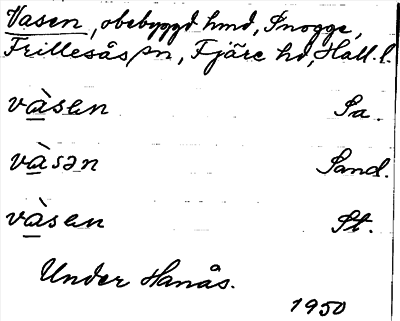 Vasen, obebyggd hmd, Snogge,
Frillesås sn, Fjäre hd, Hall. l.
và̲sen Sa.
và̲sən Sand.
và̲sen St.
Under Hanås.
1950